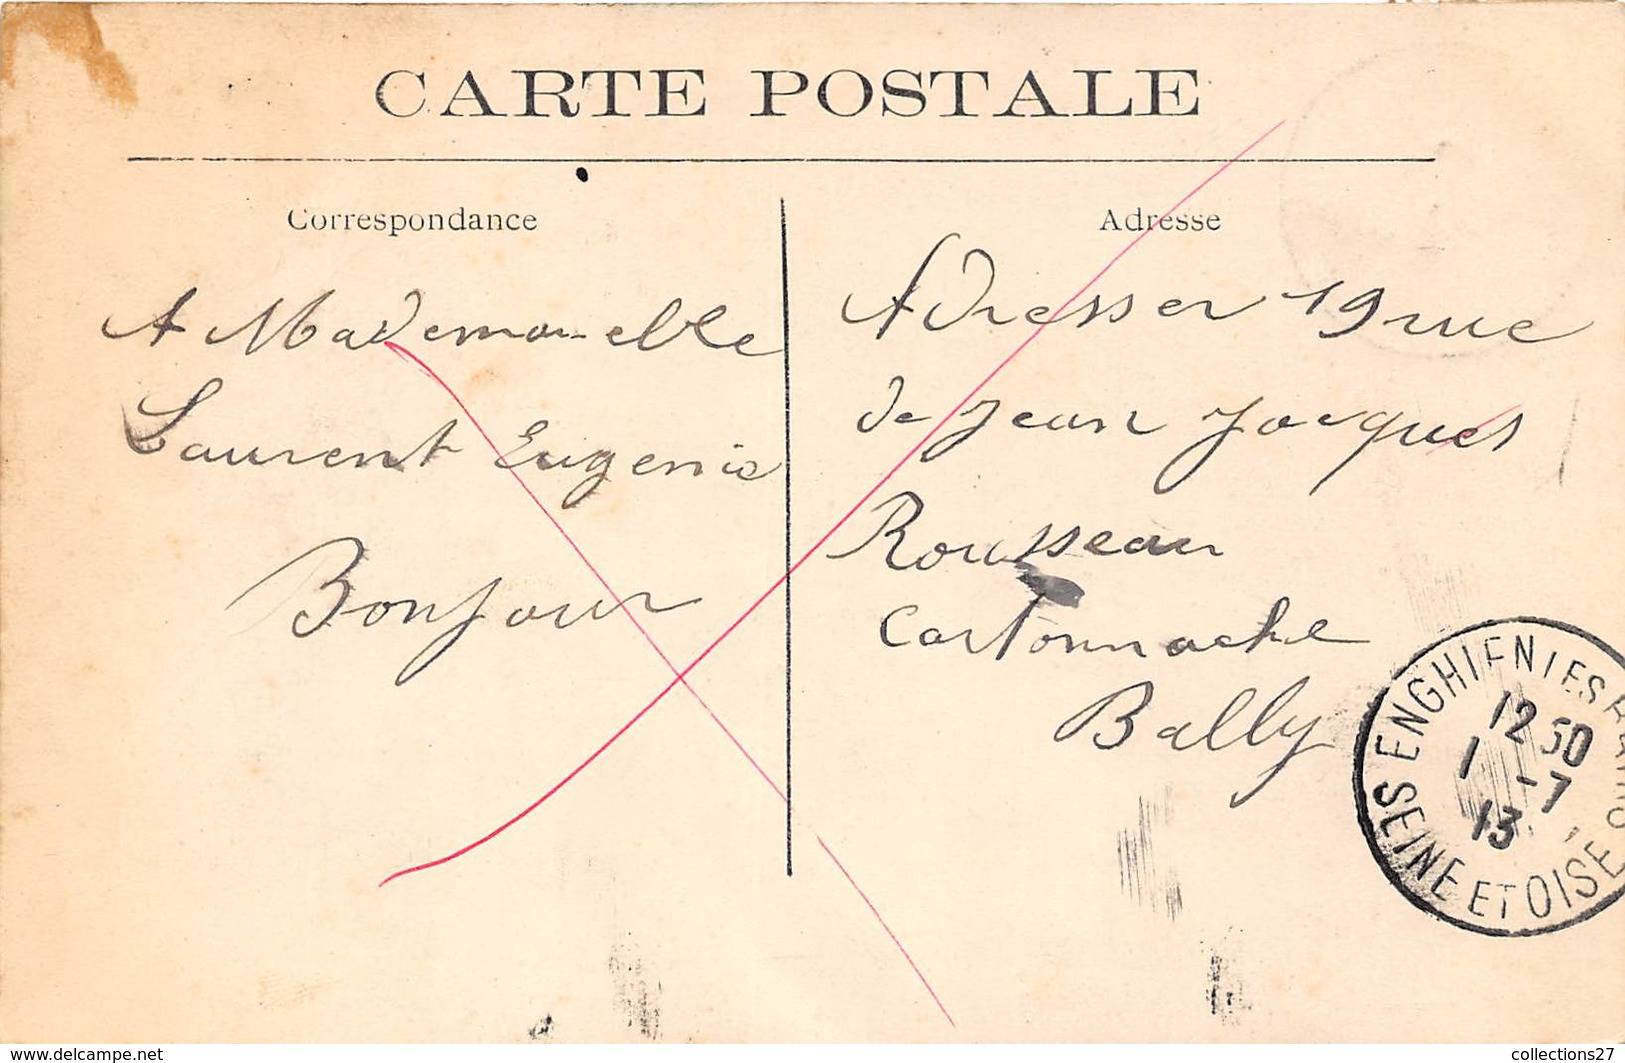 CARTE POSTALE
Correspondance
A Mademoiselle
Laurent Eugenie
Bonjour
Adresse
Adresser 19 rue
de Jean Jacques
Rousseau
Cartonnache
Bally
ENGHIEN LES BAINS
12 50
1 -7
13
SEINE ET OISE
www.delcampe.net
collections27